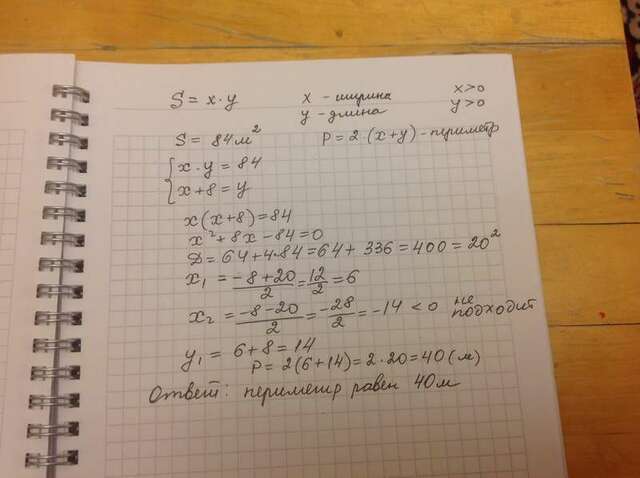 S = x · y  x - ширина  x > 0
y - длина  y > 0
S = 84 м²  P = 2 · (x + y) - периметр
{ x · y = 84
x + 8 = y
x(x+8) = 84
x² + 8x - 84 = 0
D = 64 + 4·84 = 64 + 336 = 400 = 20²
x₁ = (-8+20)/2 = 12/2 = 6
x₂ = (-8-20)/2 = -28/2 = -14 < 0 не подходит
y₁ = 6 + 8 = 14
P = 2(6+14) = 2·20 = 40 (м)
Ответ: периметр равен 40м